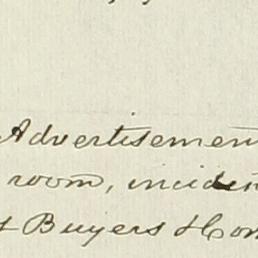 Advertisemen
room, inciden
Buyers & Com